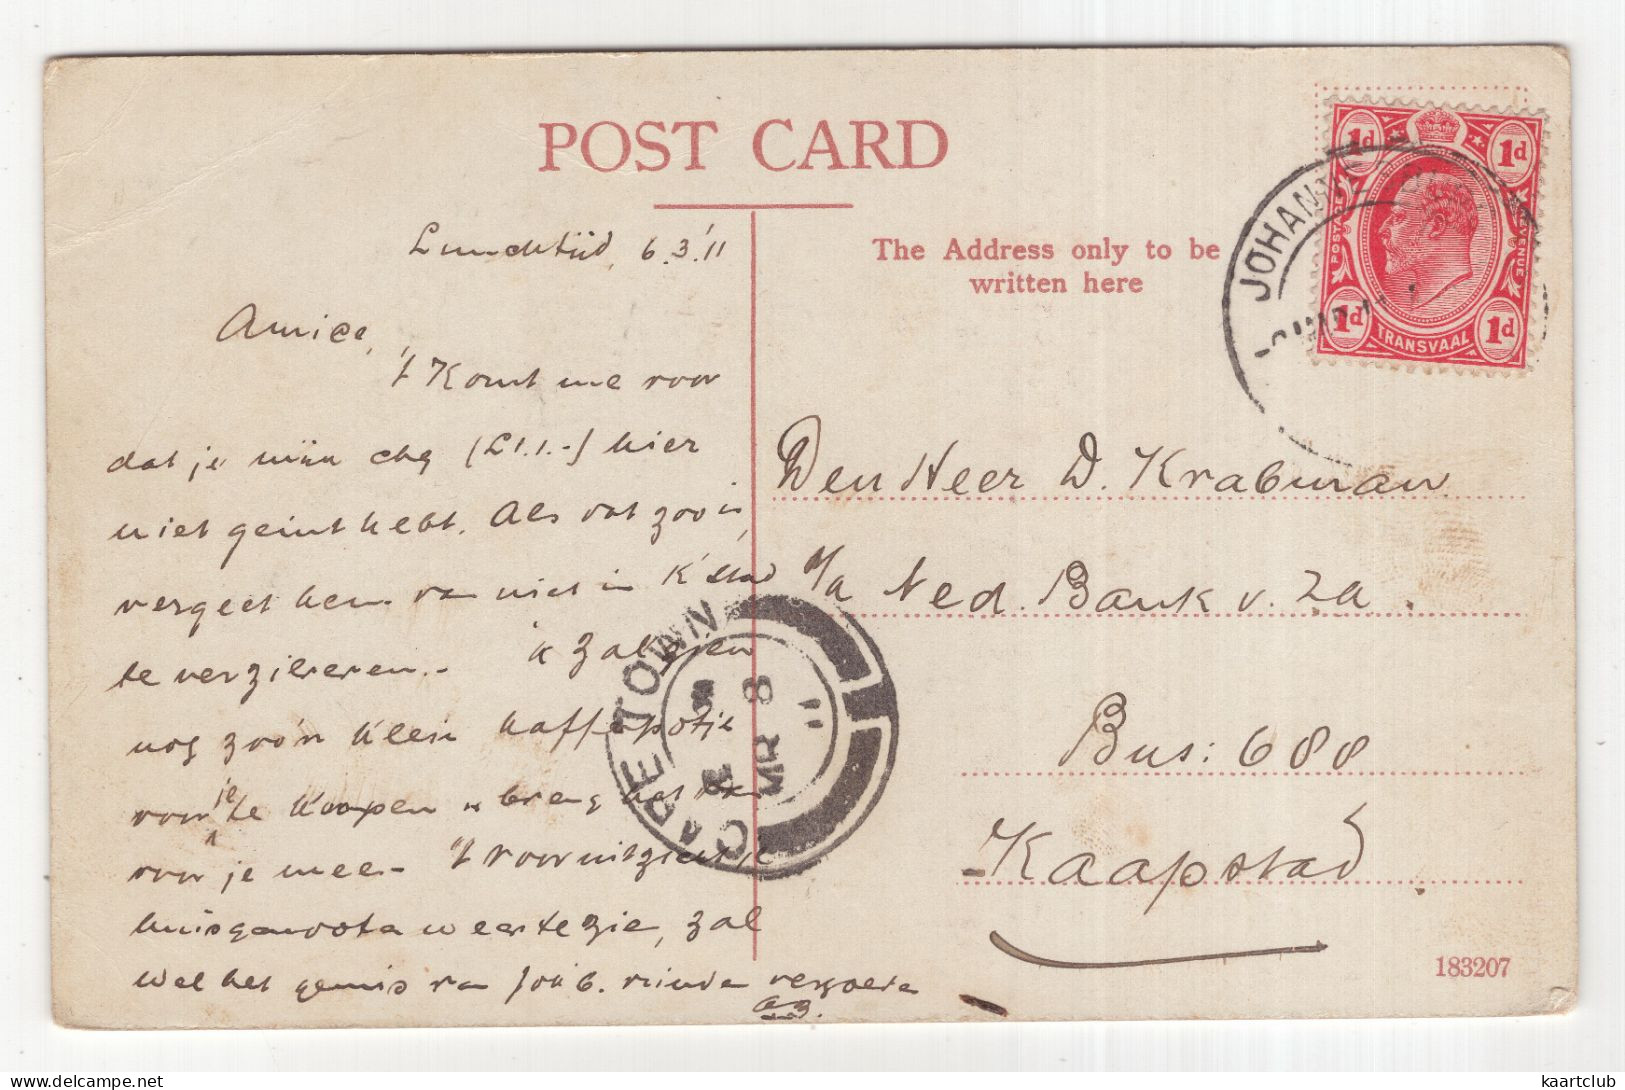 POST CARD
Lunchtijd 6.3.'11
Amice,
't Komt me voor
dat je mijn chq (£1.1.-) hier
niet geint hebt. Als dat zoo is,
vergeet hem dan niet in K'stad
te verzilveren.-  'k Zal een
nog zoo'n klein kaffepotje
voor je te koopen & breng het dan
voor je mee.- 't vooruitzicht je
huisgenoote weer te zie, zal
wel het gemis van Joh'b. vrinde vergoede
The Address only to be
written here
Den Heer D. Krabman
p/a Ned. Bank v. ZA.
Bus: 688
Kaapstad.
183207
1d 1d
POSTAGE REVENUE
1d TRANSVAAL 1d
JOHANNE
CAPE TOWN
8
MR
11
kaartclub